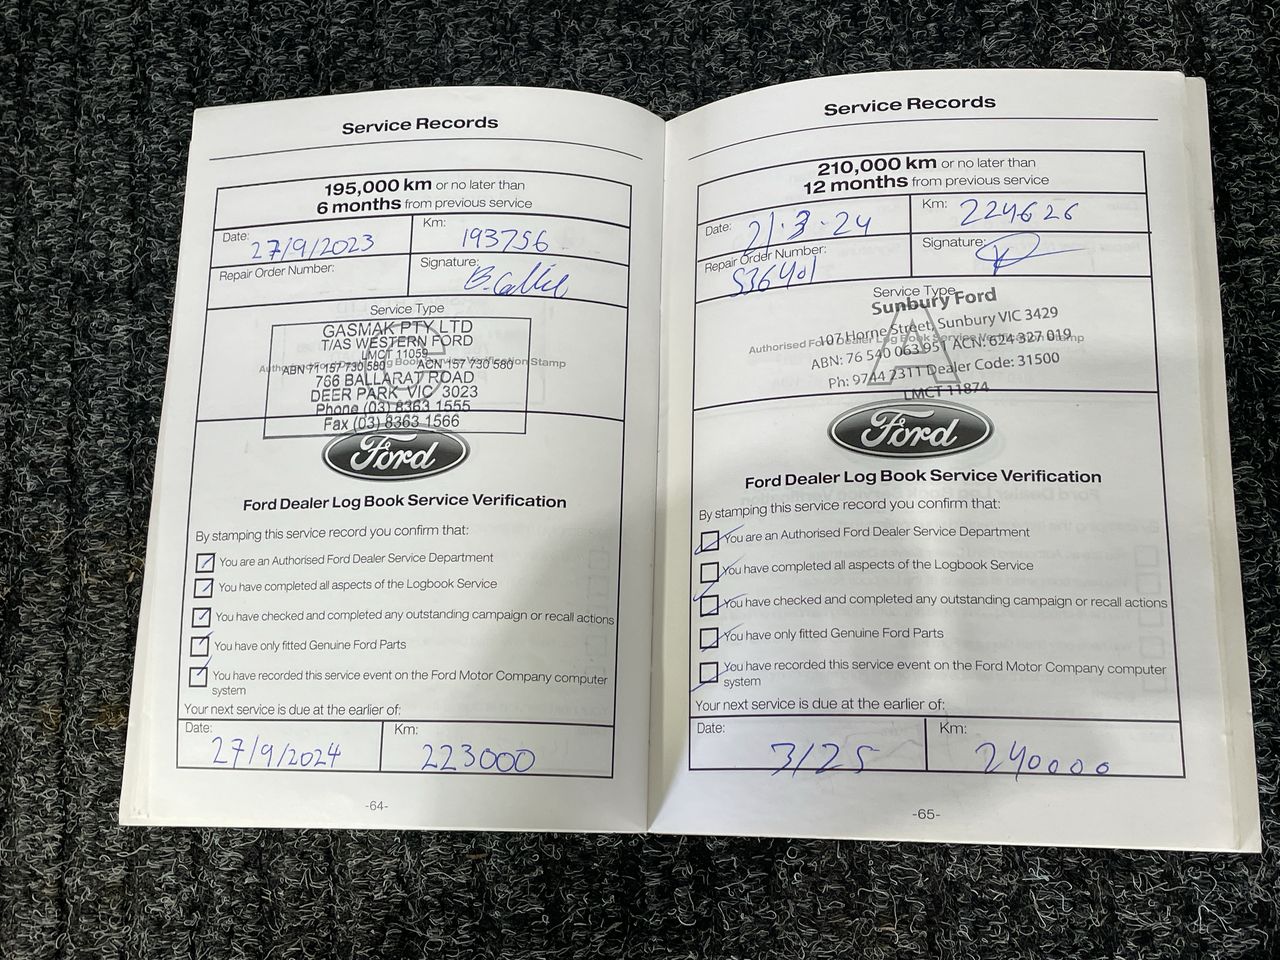 Service Records
195,000 km or no later than
6 months from previous service
Date: 27/9/2023
Km: 193756
Repair Order Number:
Signature:
Service Type
GASMAK PTY LTD
T/AS WESTERN FORD
LMCT 11059
ABN 71 157 730 580 ACN 157 730 580
766 BALLARAT ROAD
DEER PARK VIC 3023
Phone (03) 8363 1555
Fax (03) 8363 1566
Ford
Ford Dealer Log Book Service Verification
By stamping this service record you confirm that:
You are an Authorised Ford Dealer Service Department
You have completed all aspects of the Logbook Service
You have checked and completed any outstanding campaign or recall actions
You have only fitted Genuine Ford Parts
You have recorded this service event on the Ford Motor Company computer
system
Your next service is due at the earlier of:
Date: 27/9/2024
Km: 223000
-64-
Service Records
210,000 km or no later than
12 months from previous service
Date: 21.3.24
Km: 224626
Repair Order Number: S36401
Signature:
Service Type
Sunbury Ford
107 Horne Street, Sunbury VIC 3429
Authorised Ford Dealer Log Book Service Verification Stamp
ABN: 76 540 063 951 ACN 624 327 019
Ph: 9744 7311 Dealer Code: 31500
LMCT 11874
Ford
Ford Dealer Log Book Service Verification
By stamping this service record you confirm that:
You are an Authorised Ford Dealer Service Department
You have completed all aspects of the Logbook Service
You have checked and completed any outstanding campaign or recall actions
You have only fitted Genuine Ford Parts
You have recorded this service event on the Ford Motor Company computer
system
Your next service is due at the earlier of:
Date: 3/25
Km: 240000
-65-